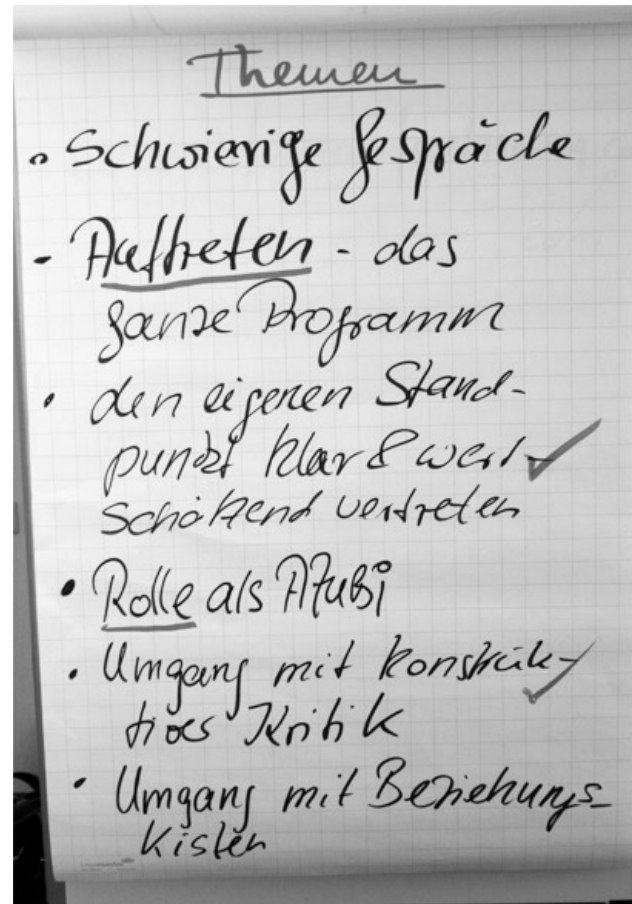 Themen
• Schwierige Gespräche
- Auftreten - das
ganze Programm
• den eigenen Stand-
punkt klar & wert-
schätzend vertreten
• Rolle als AzuBi
• Umgang mit konstruk-
tiver Kritik
• Umgang mit Beziehungs-
kisten